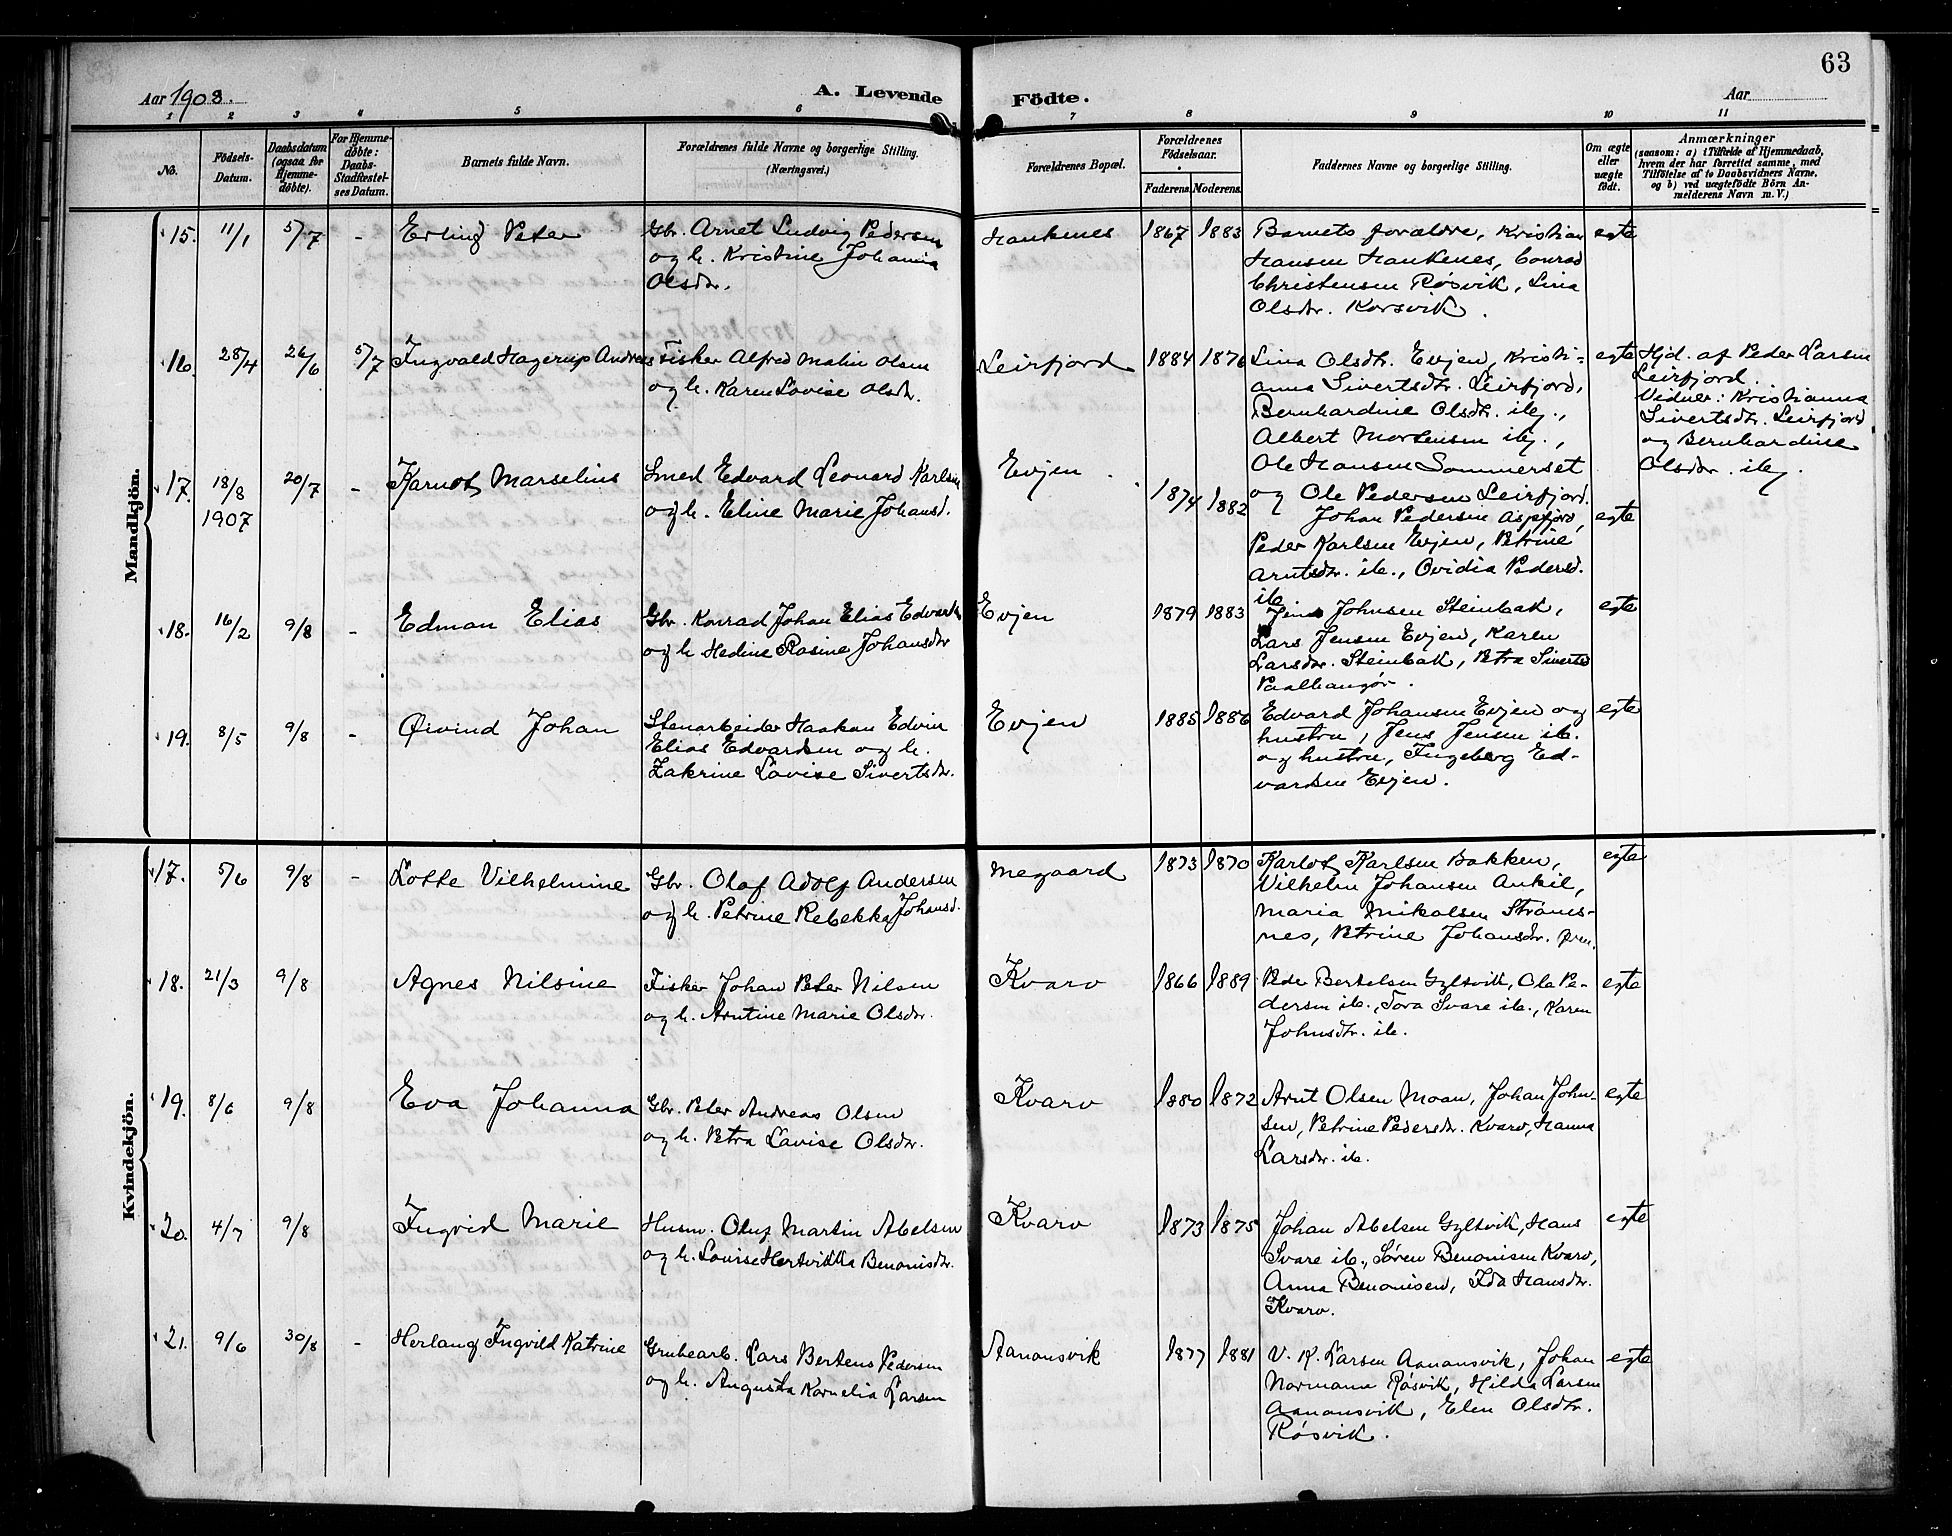 63
Aar 1908.
A. Levende
Födte.
Aar
1 2 3 4 5 6 7 8 9 10 11
No.
Födsels-
Datum.
Daabsdatum
(ogsaa for
Hjemme-
døbte).
For Hjemme-
døbte:
Daabs-
Stadfæstel-
ses Datum.
Barnets fulde Navn.
Forældrenes fulde Navne og borgerlige Stilling.
(Næringsvei.)
Forældrenes Bopæl.
Forældrenes
Fødselsaar.
Faderens.
Moderens.
Faddernes Navne og borgerlige Stilling.
Om ægte
eller
uægte
født.
Anmærkninger
(saasom: a) i Tilfælde af Hjemmedaab,
hvem der har forrettet samme, med
Tilföielse af to Daabsvidners Navne,
og b) ved uægtefødte Börn An-
melderens Navn m. V.)
Mandkjön.
15. 11/1 5/7 - Erling Peter
Gbr. Arnet Ludvig Pedersen
og h. Kristine Johanna
Olsdtr.
Hankenes 1867 1883
Barnets forældre, Kristian
Hansen Hankenes, Conrad
Christensen Røsvik, Lina
Olsdtr. Korsvik.
egte
16. 28/4 26/6 5/7 Ingvald Hagerup Andreas
Fisker Alfred Malin Olsen
og h. Karen Lovise Olsdtr.
Leirfjord 1884 1876
Lina Olsdtr. Evjen, Kristi-
anna Sivertsdtr. Leirfjord,
Bernhardine Olsdtr. ib.,
Albert Mortensen ib.,
Ole Hansen Sommerset
og Ole Pedersen Leirfjord.
egte
Hjd. af Peder Larsen
Leirfjord.
Vidner: Kristianna
Sivertsdtr. Leirfjord
og Bernhardine
Olsdtr. ib.
17. 18/8 1907 20/7 - Karnot Marselius
Smed Edvard Leonard Karlsen
og h. Eline Marie Johansd.
Evjen. 1874 1882
Johan Pedersen Aspfjord,
Peder Karlsen Evjen, Petrine
Arntsdtr. ib., Ovidia Pedersd.
ib.
egte
18. 16/2 9/8 - Edman Elias
Gbr. Konrad Johan Elias Edvards
og h. Hedine Rasine Johansdtr
Evjen 1879 1883
Jens Johnsen Steinbak,
Lars Jensen Evjen, Karen
Larsdtr. Steinbak, Petra Siverts
Paalhaugør.
egte
19. 8/5 9/8 - Øivind Johan
Stenarbeider Haakon Edvin
Elias Edvardsen og h.
Zakrine Lovise Sivertsdtr.
Evjen 1885 1886
Edvard Johansen Evjen og
hustru, Jens Jensen ib.
og hustru, Ingeborg Ed-
vardsen Evjen.
egte
Kvindekjön.
17. 5/6 9/8 - Lotte Vilhelmine
Gbr. Olaf Adolf Andersen
og h. Petrine Rebekka Johansd.
Megaard 1873 1870
Karlot Karlsen Bakken,
Vilhelm Johansen Ankil,
Maria Mikalsen Strøms-
nes, Petrine Johansdtr.
egte
18. 21/3 9/8 Agnes Nilsine
Fisker Johan Peter Nilsen
og h. Arntine Marie Olsdtr.
Kvarv 1866 1889
Peder Bertelsen Gyltvik, Ole Pe-
dersen ib., Tora Svare ib., Karen
Johnsdtr. ib.
egte
19. 8/6 9/8 Eva Johanna
Gbr. Peter Andreas Olsen
og h. Petra Lovise Olsdtr.
Kvarv 1880 1872
Arnt Olsen Moan, Johan John-
sen, Petrine Pedersdtr. Kvarv, Hanna
Larsdtr. ib.
egte
20. 4/7 9/8 Ingvid Marie
Husm. Oluf Martin Abelsen
og h. Lovise Hertvikka Benonisdtr.
Kvarv 1873 1875
Johan Abelsen Gyltvik, Hans
Svare ib., Søren Benonisen Kvarv,
Anna Benonisen, Ida Hansdtr.
Kvarv.
egte
21. 9/6 30/8 - Herlaug Ingvild Katrine
Grubearb. Lars Bertens Pedersen
og h. Augusta Kornelia Larsen
Aanonsvik 1877 1881
V. K. Larsen Aanonsvik, Johan
Normann Røsvik, Hilda Larsen
Aanonsvik, Elen Olsdtr.
Røsvik.
egte